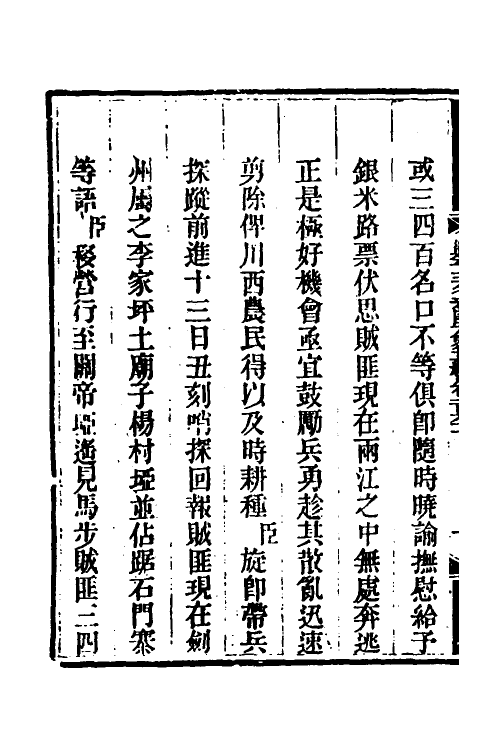 或三四百名口不等俱卽隨時曉諭撫慰給予
銀米路票伏思賊匪現在兩江之中無處奔逃
正是極好機會亟宜鼓勵兵勇趁其散亂迅速
剪除俾川西農民得以及時耕種臣旋卽帶兵
探蹤前進十三日丑刻哨探回報賊匪現在劍
州屬之李家坪土廟子楊村埡並佔踞石門寨
等語臣移營行至關帝埡遙見馬步賊匪三四